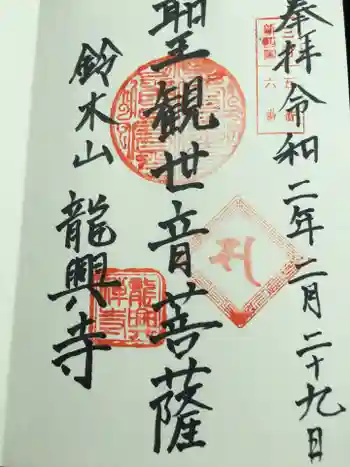 奉拝 令和二年二月二十九日
聖観世音菩薩
鈴木山 龍興寺
龍興禅寺